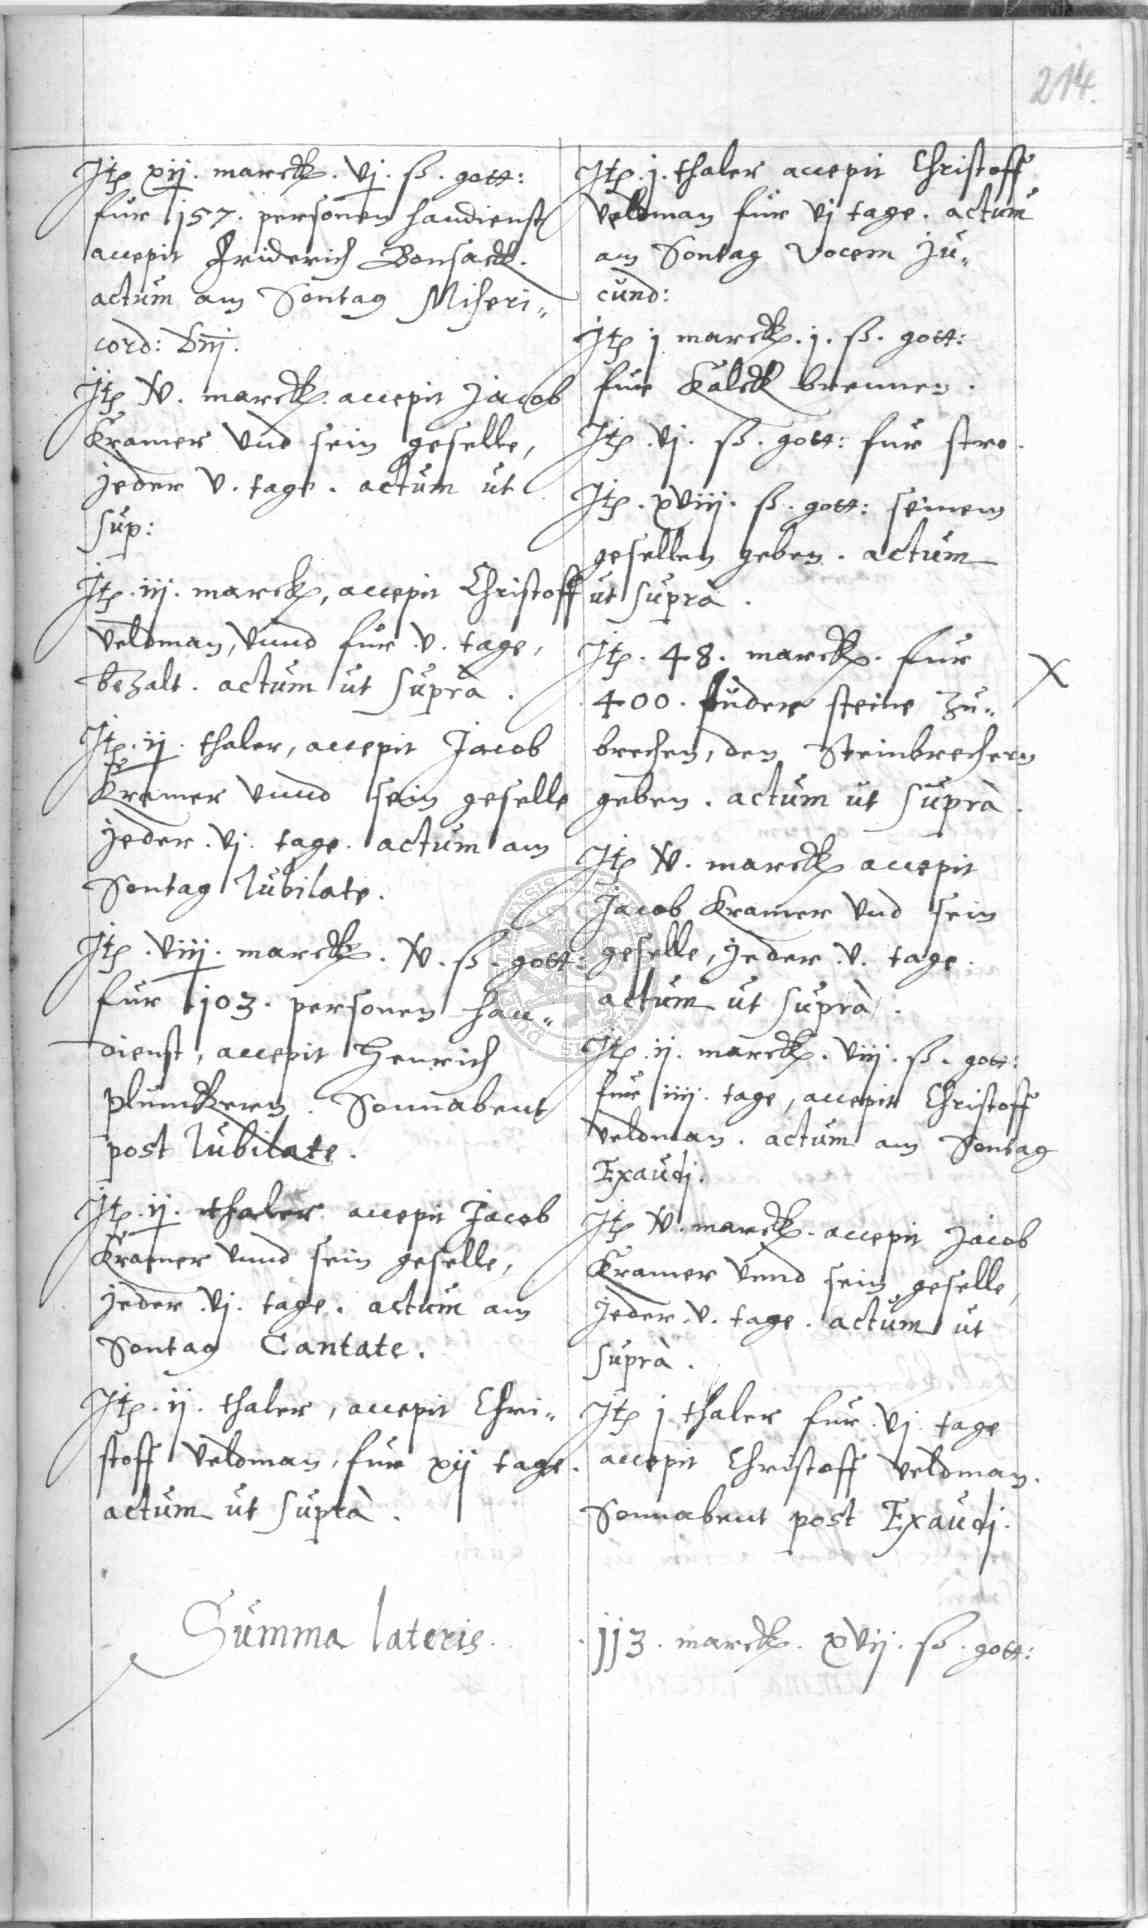 214.
Itp xij. marck. vj. ß. gott:
für 157. personen handienst
accepit Friderich Bonsack.
actum am Sontag Miseri„
cord: Dnj.
Itp iv. marck. accepit Jacob
Kramer vnd sein geselle,
jeder v. tage. actum ut
sup:
Itp. iij. marck, accepit Christoff
Veldman, vnnd für v. tage,
bezalt. actum ut suprà.
Itp. ij. thaler, accepit Jacob
Kramer vnnd sein geselle
jeder. vj. tage. actum am
Sontag Iubilate.
Itp. viij. marck. iv. ß. gott:
für 103. personen han„
dienst, accepit Henrich
Plumckern. Sonnabent
post Iubilate.
Itp. ij. thaler accepit Jacob
Kramer vnnd sein geselle,
jeder. vj. tage. actum am
Sontag Cantate.
Itp. ij. thaler, accepit Chri„
stoff Veldman, für xij tage.
actum ut suprà.
Itp. j. thaler accepit Christoff
Veldman für vj tage. actum
am Sontag Vocem Ju„
cund:
Itp j marck. j. ß. gott:
für Kalck brennen.
Itp. vj. ß. gott: für stro.
Itp. xviij. ß. gott: seinem
gesellen geben. actum
ut suprà.
Itp. 48. marck. für
400. fuder steine zu„
brechen, den Steinbrechern
geben. actum ut suprà.
Itp iv. marck accepit
Jacob Kramer vnd sein
geselle, jeder. v. tage.
actum ut suprà.
Itp. ij. marck. viij. ß. gott:
für iiij. tage, accepit Christoff
Veldman. actum am Sontag
Exaudj.
Itp iv. marck. accepit Jacob
Kramer vnnd sein geselle,
jeder. v. tage. actum ut
suprà.
Itp j thaler für. vj tage
accepit Christoff Veldman.
Sonnabent post Exaudj.
Summa lateris. 113. marck. xvij. ß. gott: